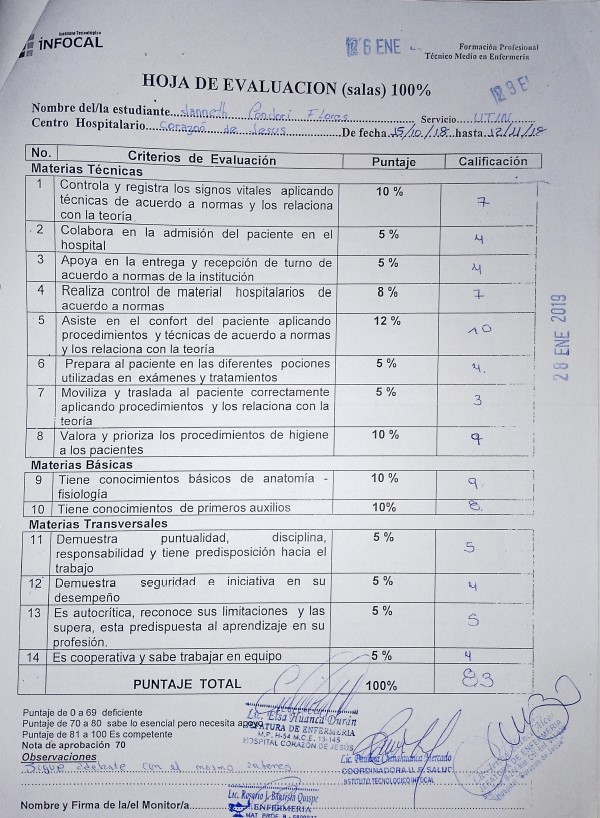 Instituto Tecnológico
INFOCAL
26 ENE
Formación Profesional
Técnico Medio en Enfermería
28 E
HOJA DE EVALUACION (salas) 100%
Nombre del/la estudiante...Janneth Condori Flores Servicio...UTIN
Centro Hospitalario...Corazón de Jesus...De fecha.15/10/18.hasta.12/11/18
No. Criterios de Evaluación Puntaje Calificación
Materias Técnicas
1 Controla y registra los signos vitales aplicando técnicas de acuerdo a normas y los relaciona con la teoría 10 % 7
2 Colabora en la admisión del paciente en el hospital 5 % 4
3 Apoya en la entrega y recepción de turno de acuerdo a normas de la institución 5 % 4
4 Realiza control de material hospitalarios de acuerdo a normas 8 % 7
5 Asiste en el confort del paciente aplicando procedimientos y técnicas de acuerdo a normas y los relaciona con la teoría 12 % 10
6 Prepara al paciente en las diferentes pociones utilizadas en exámenes y tratamientos 5 % 4
7 Moviliza y traslada al paciente correctamente aplicando procedimientos y los relaciona con la teoría 5 % 3
8 Valora y prioriza los procedimientos de higiene a los pacientes 10 % 9
Materias Básicas
9 Tiene conocimientos básicos de anatomía - fisiología 10 % 9
10 Tiene conocimientos de primeros auxilios 10% 8
Materias Transversales
11 Demuestra puntualidad, disciplina, responsabilidad y tiene predisposición hacia el trabajo 5 % 5
12 Demuestra seguridad e iniciativa en su desempeño 5 % 4
13 Es autocrítica, reconoce sus limitaciones y las supera, esta predispuesta al aprendizaje en su profesión. 5 % 5
14 Es cooperativa y sabe trabajar en equipo 5 % 4
PUNTAJE TOTAL 100% 83
28 ENE 2019
Puntaje de 0 a 69 deficiente
Puntaje de 70 a 80 sabe lo esencial pero necesita apoyo
Puntaje de 81 a 100 Es competente
Nota de aprobación 70
Observaciones
Sigue adelante con el mismo
Lic. Elsa Huanca Durán
JEFATURA DE ENFERMERIA
M.P. H-54 M.C.E. 13-145
HOSPITAL CORAZÓN DE JESÚS
Mercado
COORDINADORA U.A. SALUD
INSTITUTO TECNOLOGICO INFOCAL
Nombre y Firma de la/el Monitor/a
Lic. Rosario J. Quispe
ENFERMERIA